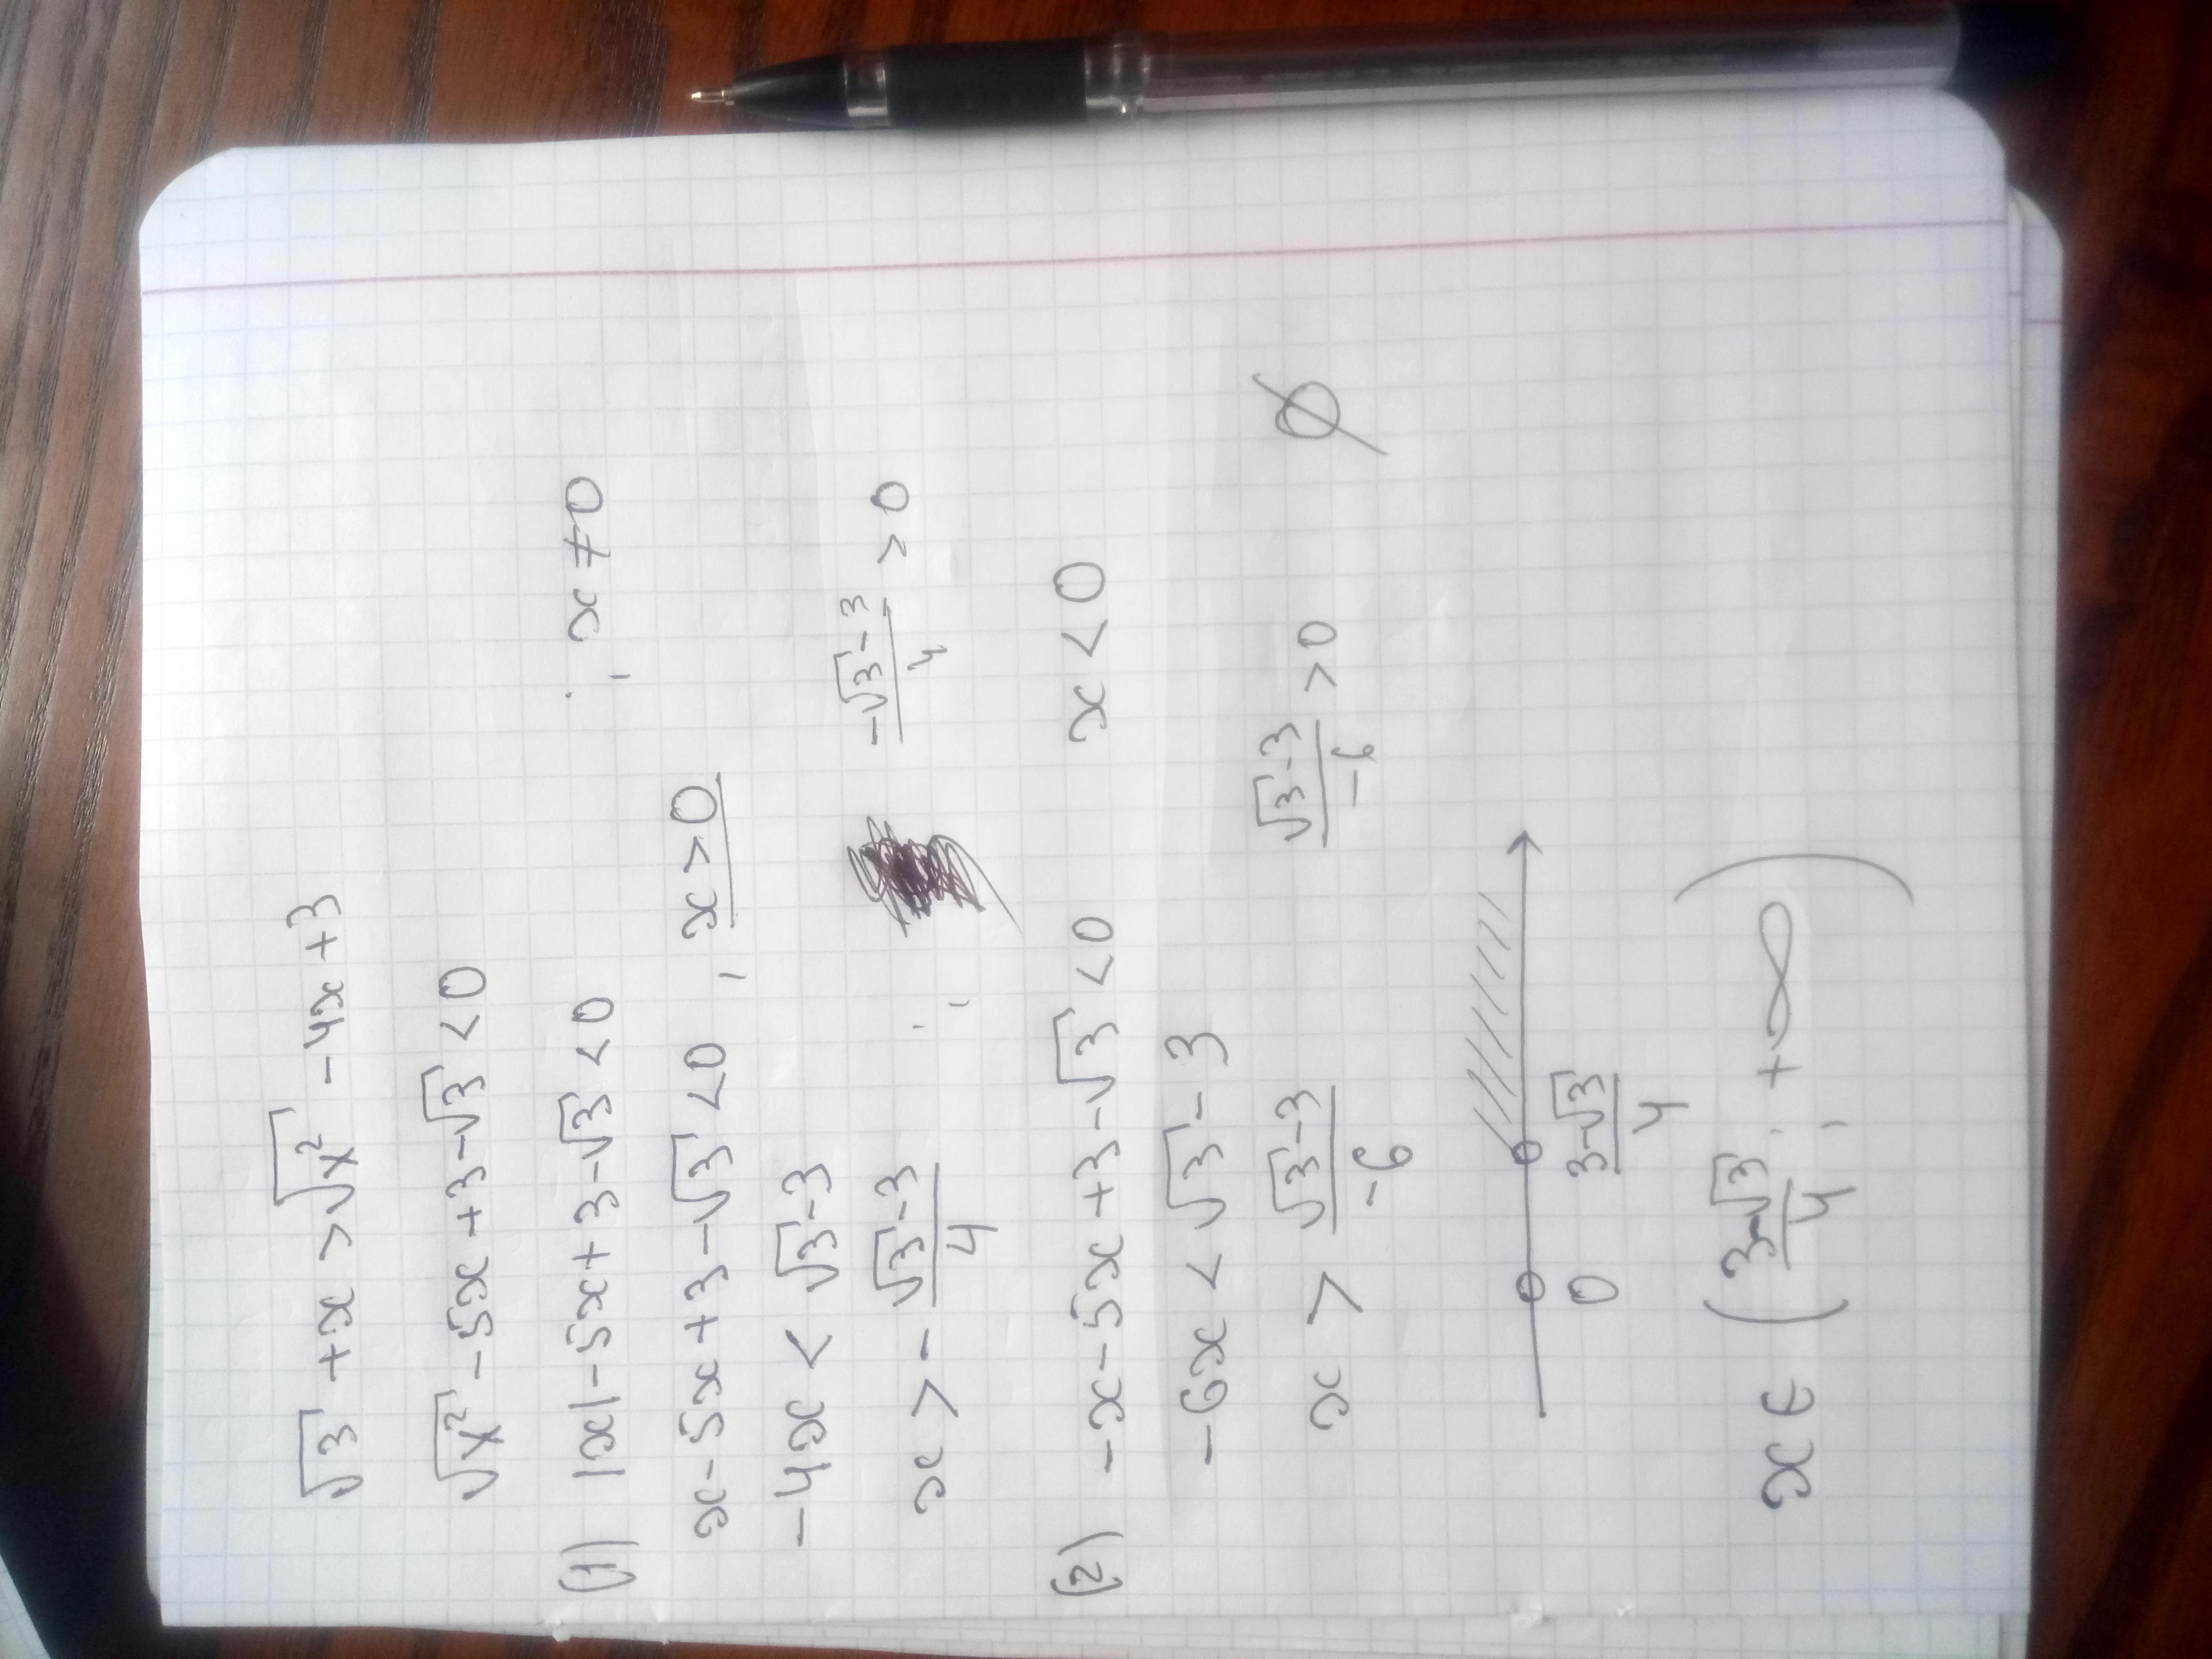 √3 + x > √x² - 4x + 3
√x² - 5x + 3 - √3 < 0
(1) |x| - 5x + 3 - √3 < 0 ; x ≠ 0
x - 5x + 3 - √3 < 0 , x > 0
-4x < √3 - 3
x > - (√3 - 3)/4 ; (-√3 - 3)/4 > 0
(2) -x - 5x + 3 - √3 < 0 x < 0
-6x < √3 - 3
x > (√3 - 3)/-6 (√3 - 3)/-6 > 0 Ø
0 (3 - √3)/4
x ∈ ((3 - √3)/4 ; +∞)